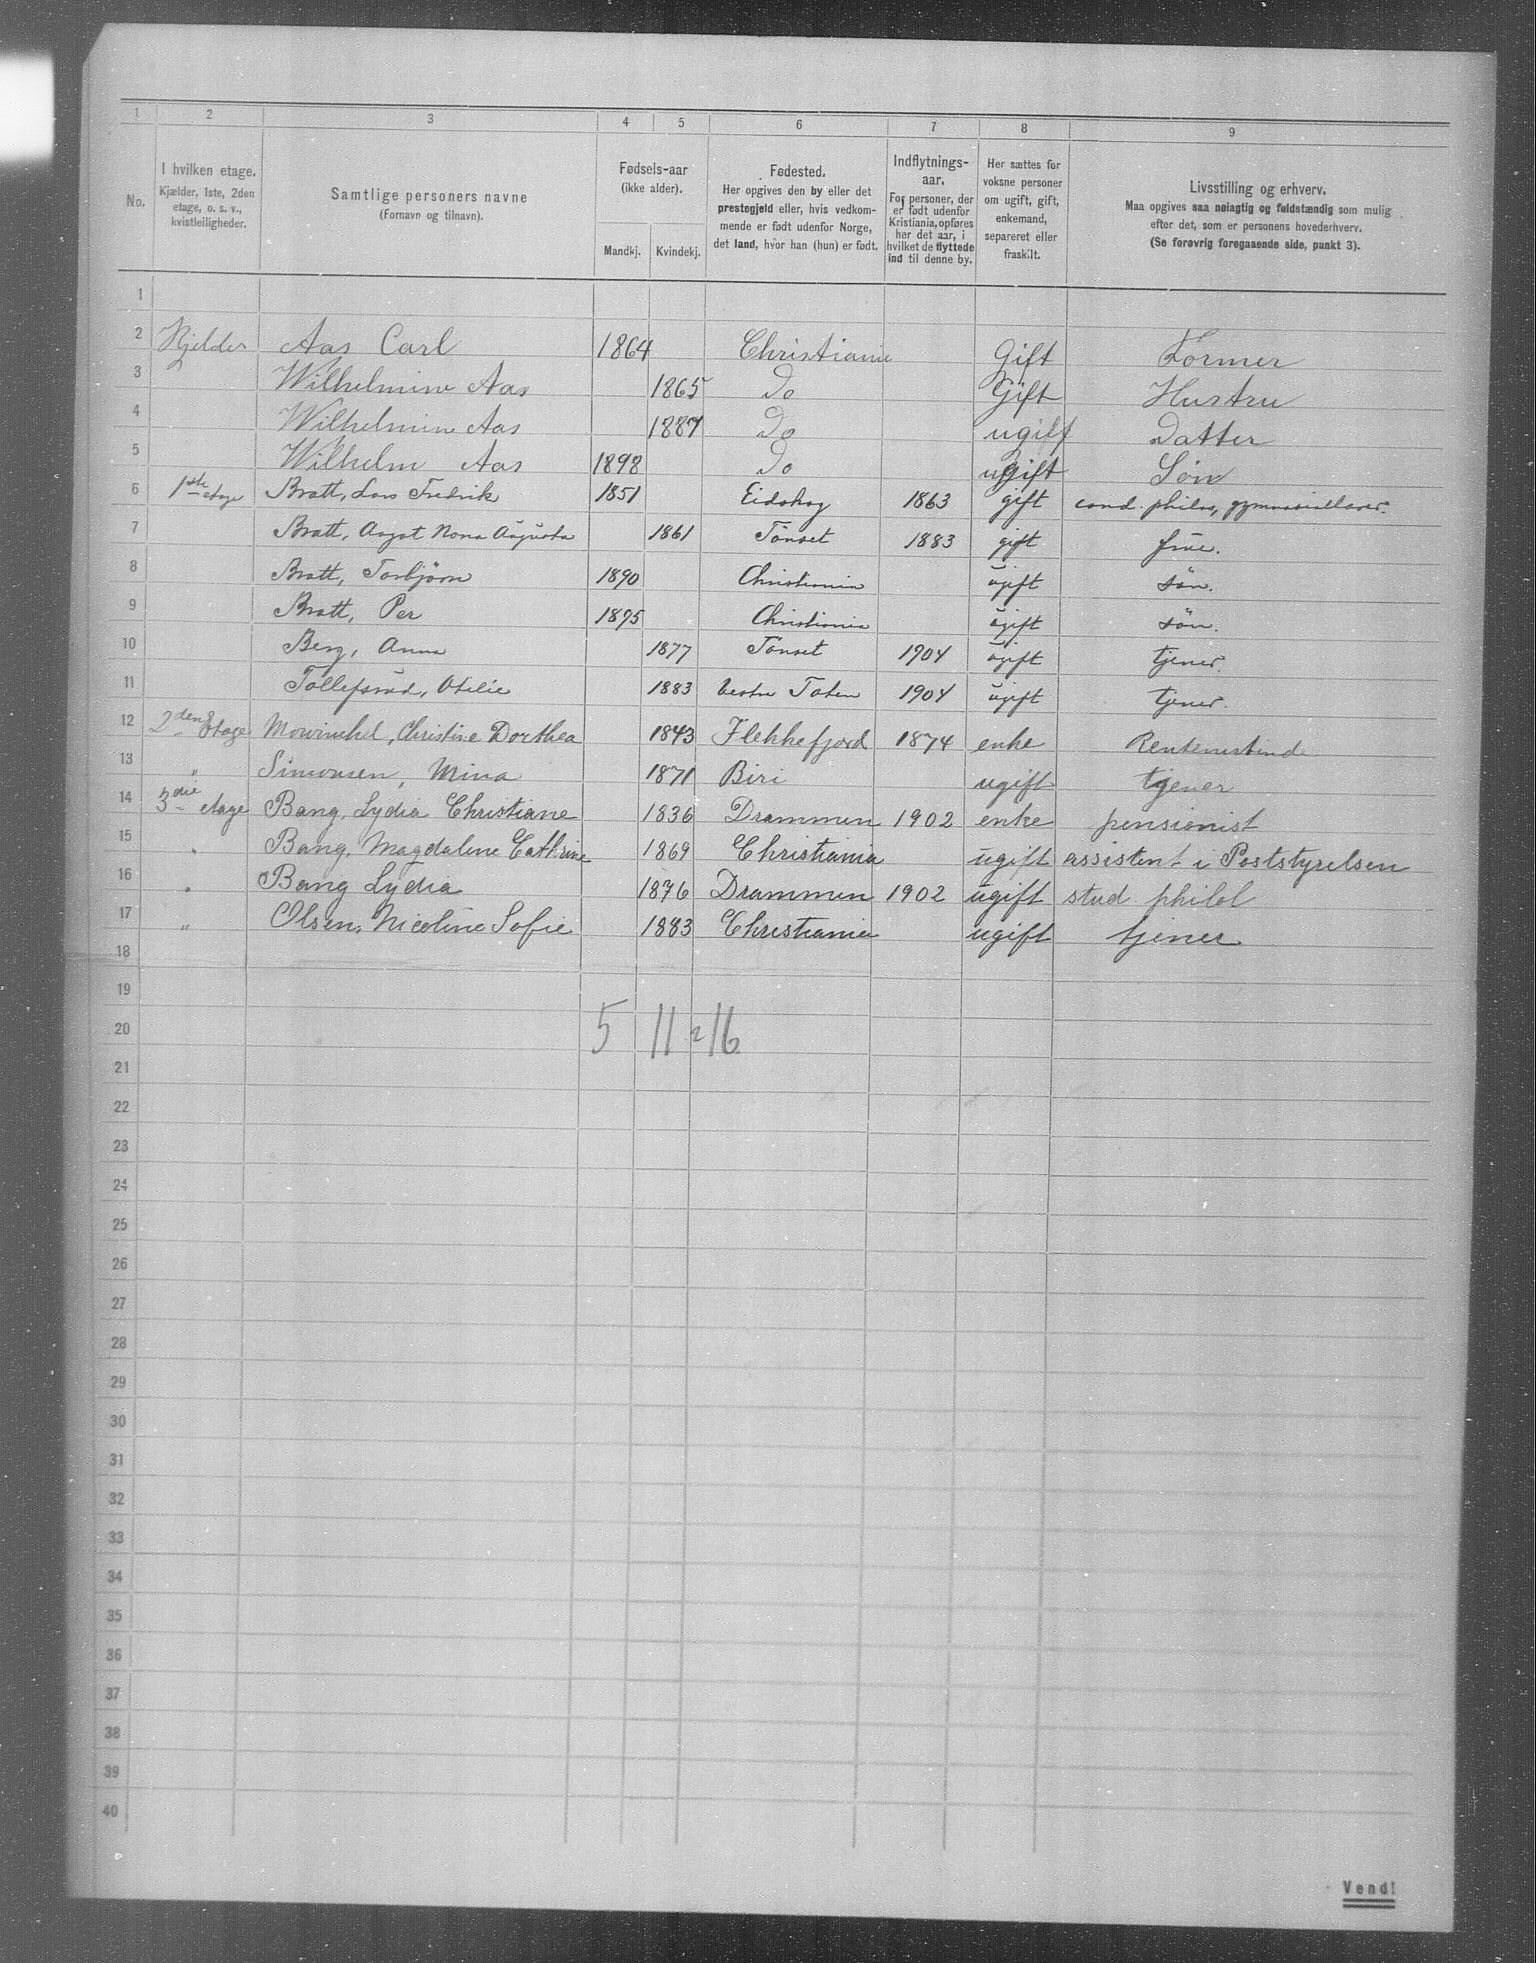 1 2 3 4 5 6 7 8 9
No.
I hvilken etage.
Kjælder, 1ste, 2den
etage, o. s. v.,
kvistleiligheder.
Samtlige personers navne
(Fornavn og tilnavn).
Fødsels-aar
(ikke alder).
Mandkj. Kvindekj.
Fødested.
Her opgives den by eller det
prestegjeld eller, hvis vedkom-
mende er født udenfor Norge,
det land, hvor han (hun) er født.
Indflytnings-
aar.
For personer, der
er født udenfor
Kristiania, opføres
her det aar, i
hvilket de flyttede
ind til denne by.
Her sættes for
voksne personer
om ugift, gift,
enkemand,
separeret eller
fraskilt.
Livsstilling og erhverv.
Maa opgives saa nøiagtig og fuldstændig som mulig
efter det, som er personens hovederhverv.
(Se forøvrig foregaaende side, punkt 3).
1
2 Kjelder Aas Carl 1864 Christiania Gift Former
3 Wilhelmine Aas 1865 Do Gift Hustru
4 Wilhelmine Aas 1887 Do ugift Datter
5 Wilhelm Aas 1898 Do ugift Søn
6 1ste etage Bratt, Lars Fredrik 1851 Eidskog 1863 gift cand. philos, gymnasiallærer.
7 Bratt, Aagot Nora Augusta 1861 Tönset 1883 gift frue.
8 Bratt, Torbjörn 1890 Christiania ugift sön.
9 Bratt, Per 1895 Christiania ugift sön.
10 Berg, Anna 1877 Tönset 1904 ugift tjener.
11 Tollefsrud, Otilie 1883 Vestre Toten 1904 ugift tjener.
12 2den Etage Mowinckel, Christine Dorthea 1843 Flekkefjord 1874 enke Rentenist
13 " Simonsen, Mina 1871 Biri ugift tjener
14 3die etage Bang, Lydia Christiane 1836 Drammen 1902 enke pensionist
15 " Bang, Magdalene Cathrine 1869 Christiania ugift assistent i Poststyrelsen
16 " Bang Lydia 1876 Drammen 1902 ugift stud. philol
17 " Olsen, Nicoline Sofie 1883 Christiania ugift tjener
18
19
20 5 11 = 16
21
22
23
24
25
26
27
28
29
30
31
32
33
34
35
36
37
38
39
40
Vend!